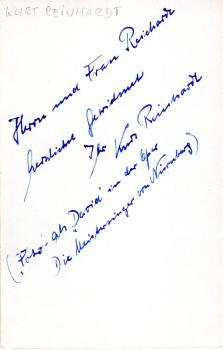 KURT REINHARDT
Herrn und Frau Reichardt
herzlichst gewidmet
Ihr Kurt Reinhardt
(Foto: als "David" in der Oper
Die Meistersinger von Nürnberg)